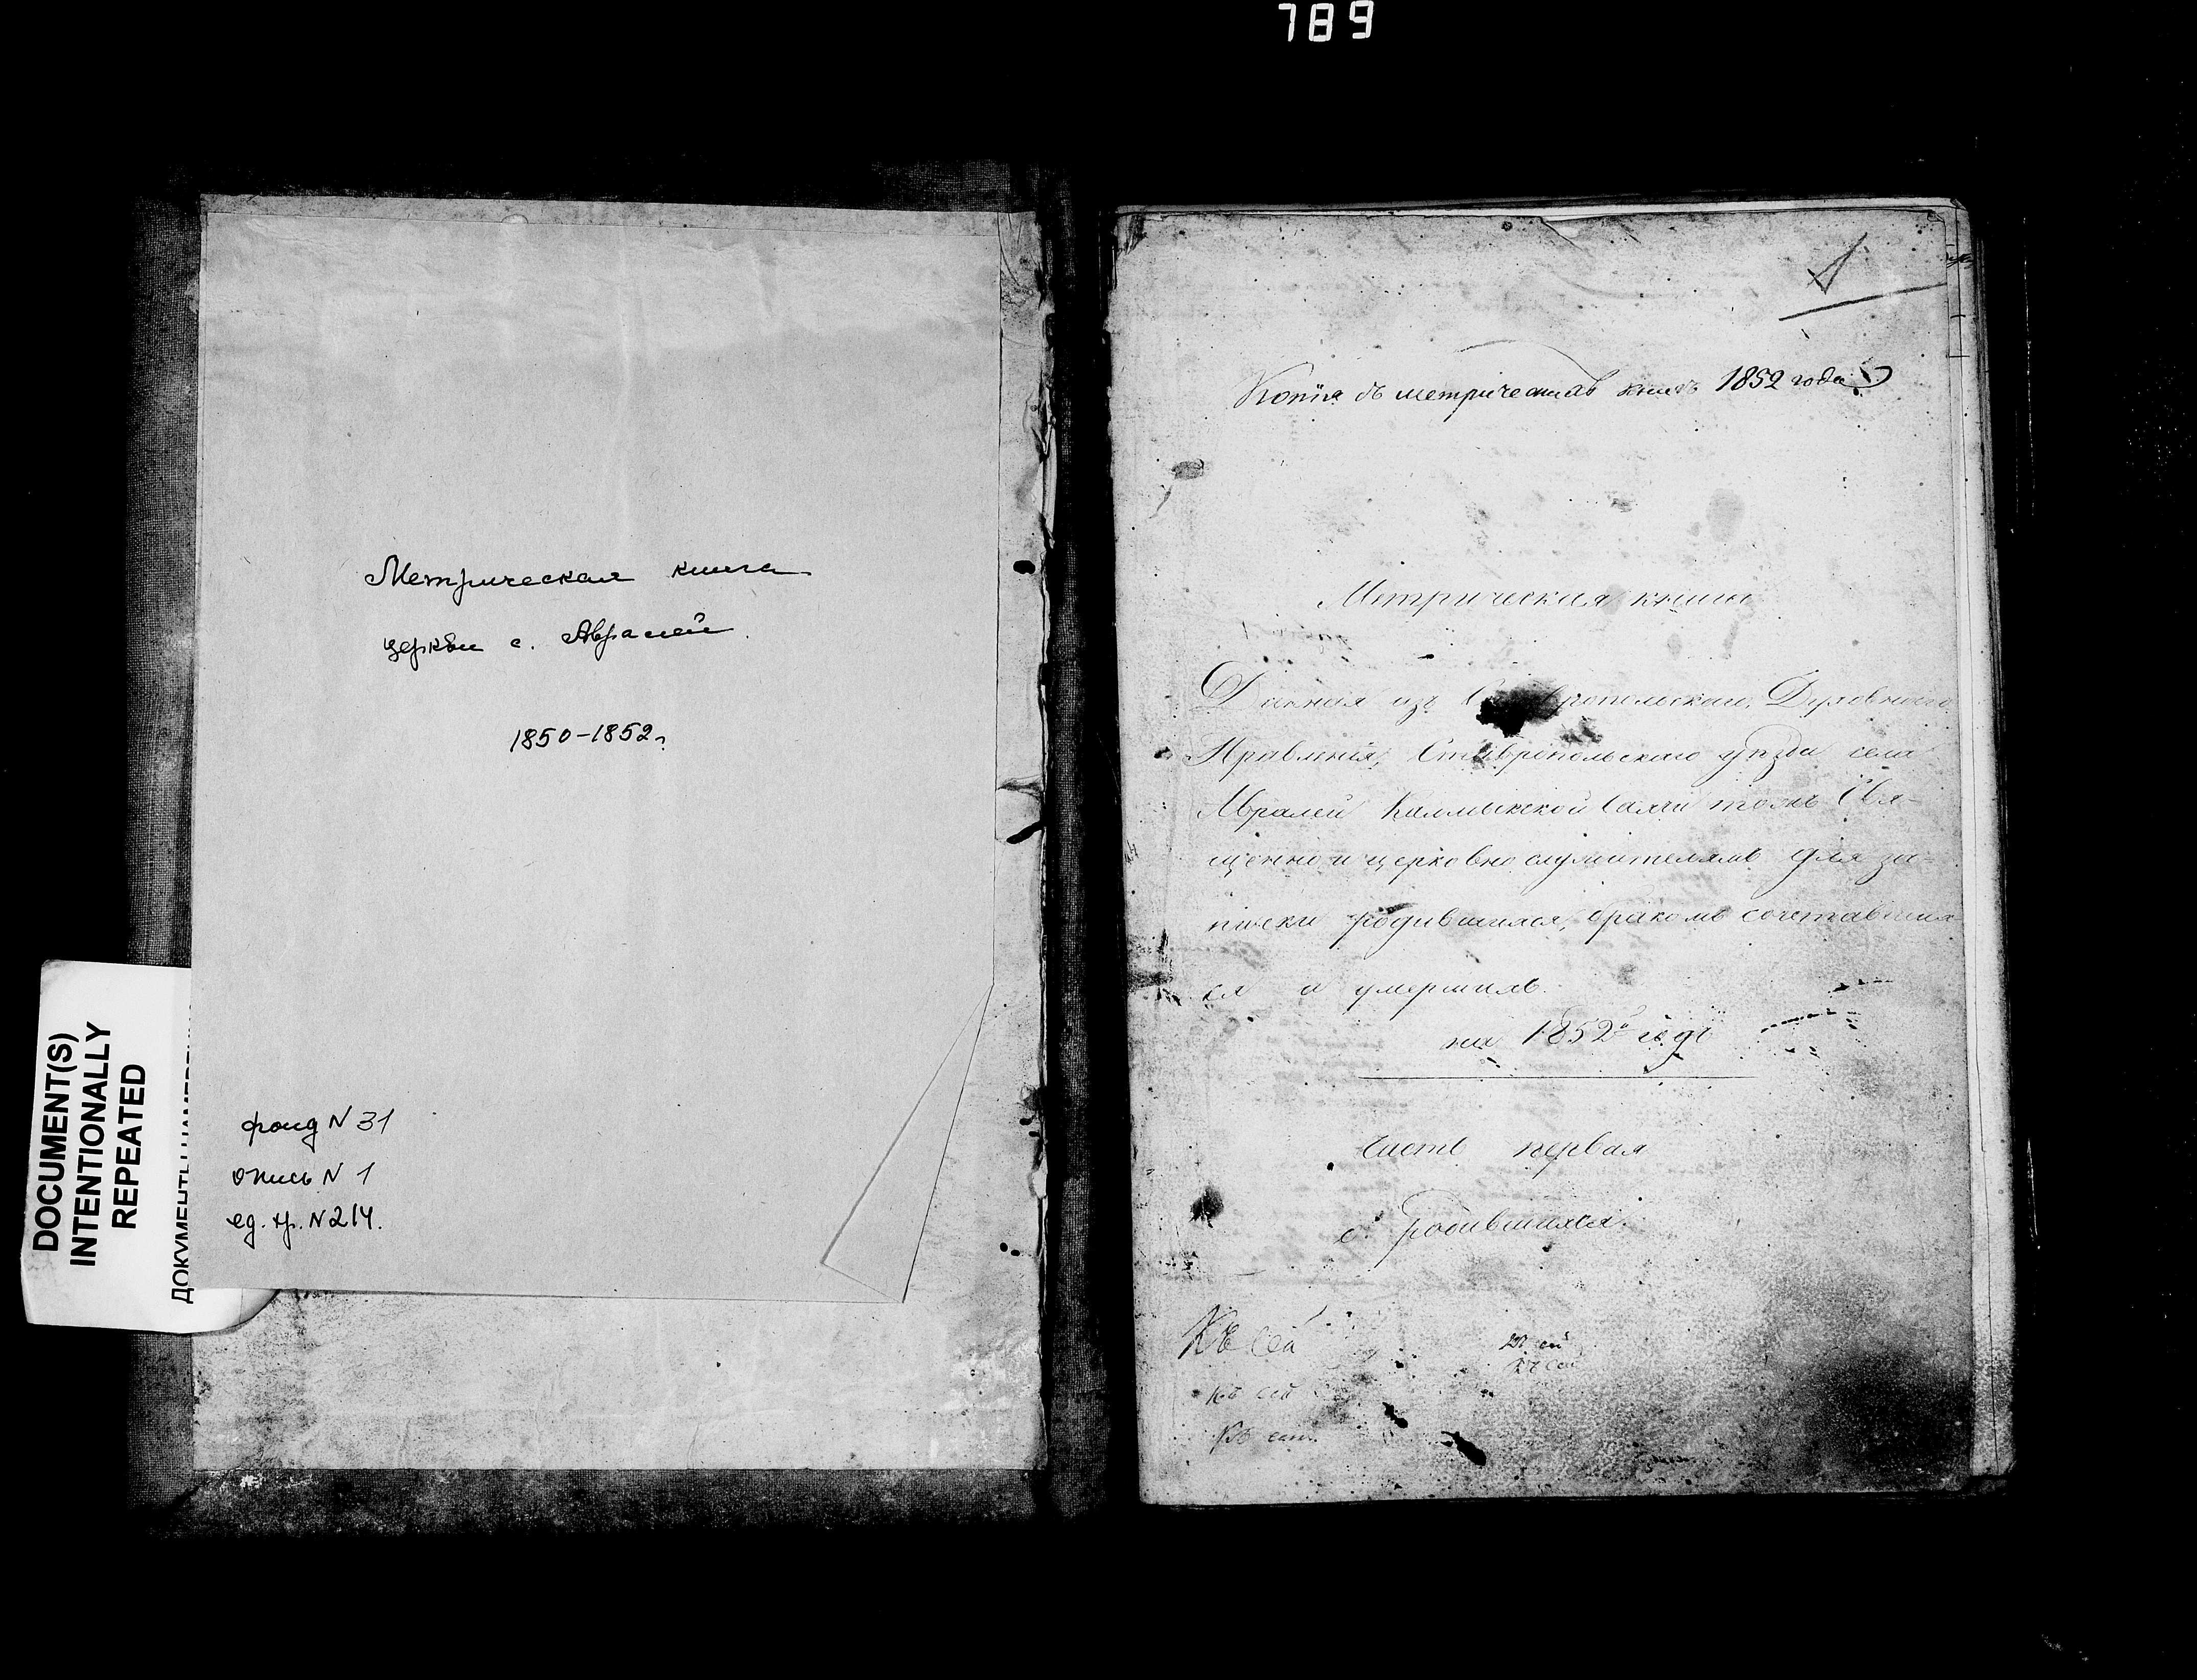 789
Метрическая книга
церкви с. Авралей
1850-1852г.
фонд N 31
опись N 1
ед. хр. N 214.
DOCUMENT(S)
INTENTIONALLY
REPEATED
Копія съ метрическихъ книгъ 1852 года
Метрическая книга
Данная изъ Духовнаго
Правленія, Ставропольскаго уѣзда села
Авралей Калмыкской тожъ Свя-
щенно и церковно служителямъ для за-
писки родившихся, бракомъ сочетавших
ся и умершихъ.
на 1852й годъ
Часть первая
о родившихся.
Къ сей
Къ сей
къ сей
къ сей
Къ